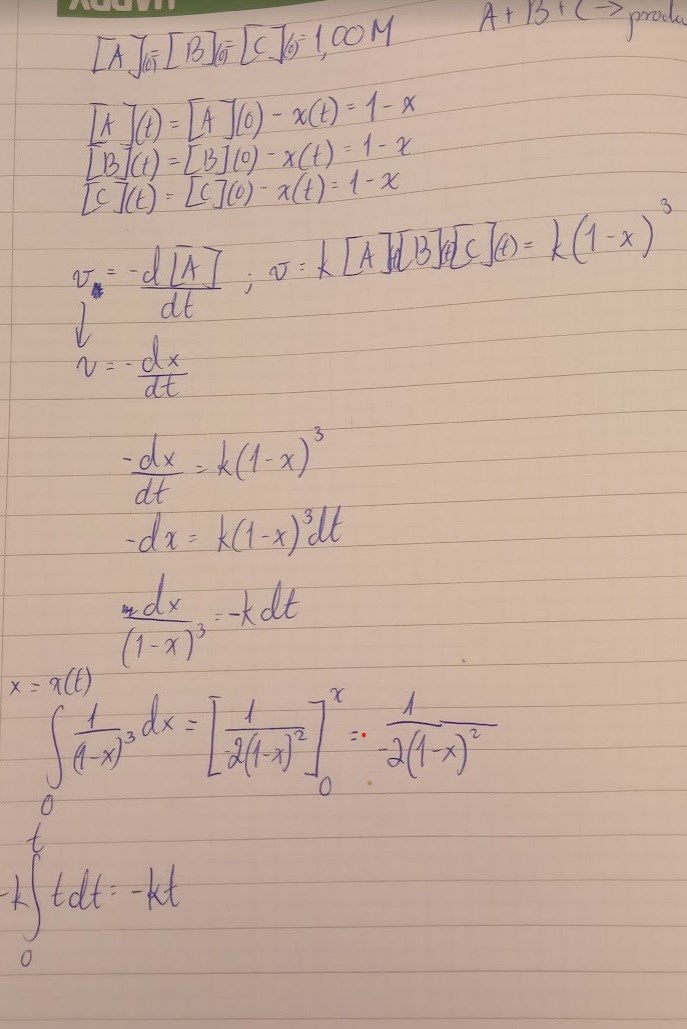 A + B + C → produ
[A](0) = [B](0) = [C](0) = 1,00 M
[A](t) = [A](0) - x(t) = 1 - x
[B](t) = [B](0) - x(t) = 1 - x
[C](t) = [C](0) - x(t) = 1 - x
v = -d[A]/dt ; v = k[A](t)[B](t)[C](t) = k(1-x)^3
↓
v = -dx/dt
-dx/dt = k(1-x)^3
-dx = k(1-x)^3 dt
dx/(1-x)^3 = -k dt
x = x(t)
∫_0 1/(1-x)^3 dx = [1/-2(1-x)^2]_0^x = 1/-2(1-x)^2
-k ∫_0^t t dt = -kt